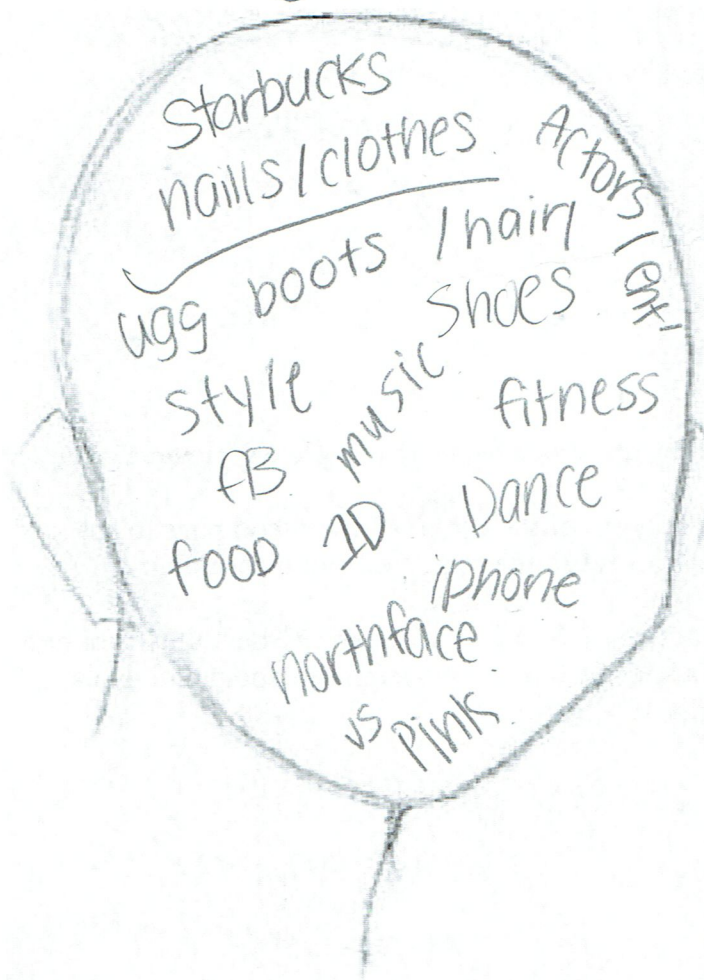 Starbucks
naills/clothes
Actors/ent'
/hair/
ugg boots
shoes
style
music
fitness
fB
Dance
food
1D
iphone
northface
vs Pink